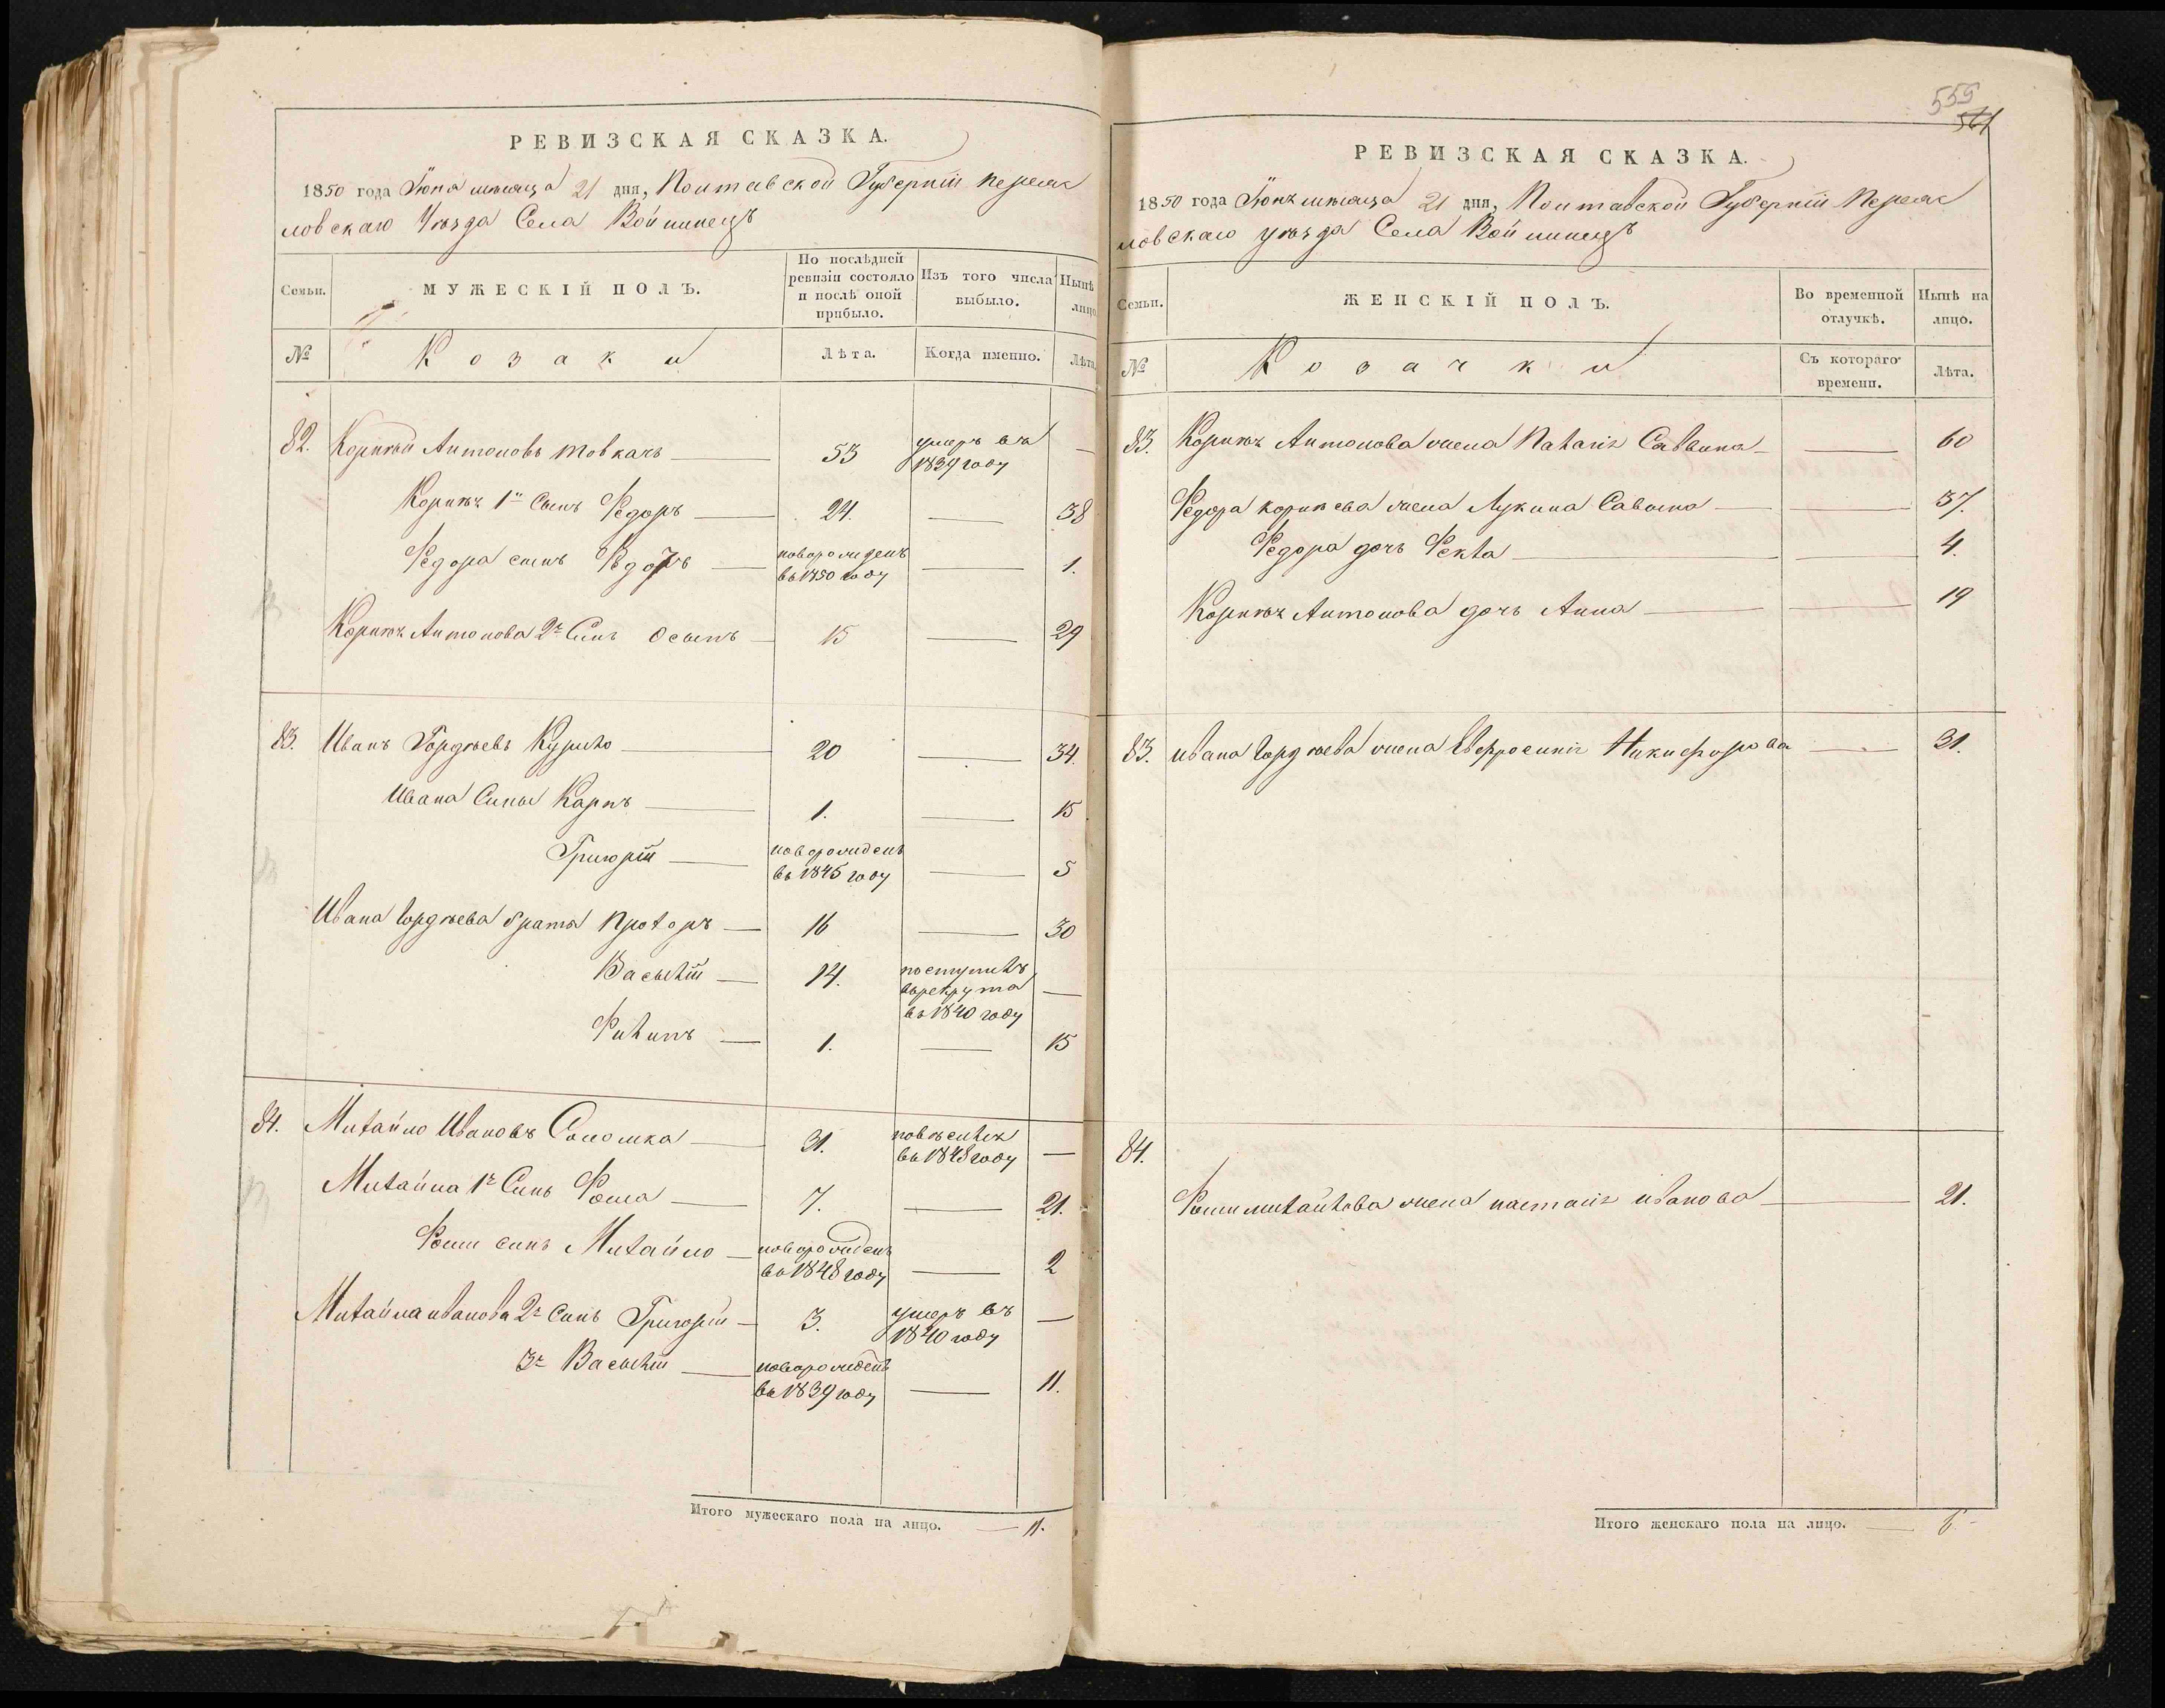 РЕВИЗСКАЯ СКАЗКА.
1850 года Іюня мѣсяца 21 дня, Полтавской Губерніи Переяс
ловскаго Уѣзда Села Войтинецъ
Семьи.
МУЖЕСКІЙ ПОЛЪ.
По послѣдней
ревизіи состояло
и послѣ оной
прибыло.
Изъ того числа
выбыло.
Нынѣ
лицо
№
Козаки
Лѣта.
Когда именно.
Лѣта.
82. Корнѣй Антоновъ Товкачъ — 53 умеръ въ —
1839 году
Корнѣя 1й Сынъ Федоръ — 24. — 38
Федора сынъ Федоръ — новорожденъ — 1.
въ 1850 году
Корнѣя Антонова 2й Сынъ Осыпъ — 15 — 29
83. Иванъ Гордѣевъ — 20 — 34.
Ивана Сыны Карпъ — 1. — 15
Григорій — новорожденъ — 5
въ 1845 году
Ивана Гордѣева братья Прохоръ — 16 — 30
Василій — 14. поступилъ —
въ рекруты
въ 1840 году
Филипъ — 1. — 15
84. Михайло Ивановъ Соломка — 31. повѣсился —
въ 1848 году
Михайла 1й Сынъ Фома — 7. — 21.
Фомы сынъ Михайло — новорожденъ — 2
въ 1848 году
Михайла Иванова 2й Сынъ Григорій — 3. умеръ въ —
1840 году
3й Василій — новорожденъ — 11.
въ 1839 году
Итого мужескаго пола на лицо. — 11.
555
561
РЕВИЗСКАЯ СКАЗКА.
1850 года Іюня мѣсяца 21 дня, Полтавской Губерніи Переяс
ловскаго уѣзда Села Войтинецъ
Семьи.
ЖЕНСКІЙ ПОЛЪ.
Во временной
отлучкѣ.
Нынѣ на
лицо.
№
Козачки
Съ котораго
времени.
Лѣта.
83. Корнѣя Антонова жена Наталія Саввина — — 60
Федора Корнѣева жена Саввина — — 37.
Федора дочь Фекла — — 4.
Корнѣя Антонова дочь Анна — — 19
83. Ивана Гордѣева жена Евфросинія Никифорова — 31.
84.
Фомы Михайлова жена Настасія Иванова — 21.
Итого женскаго пола на лицо. — 6.